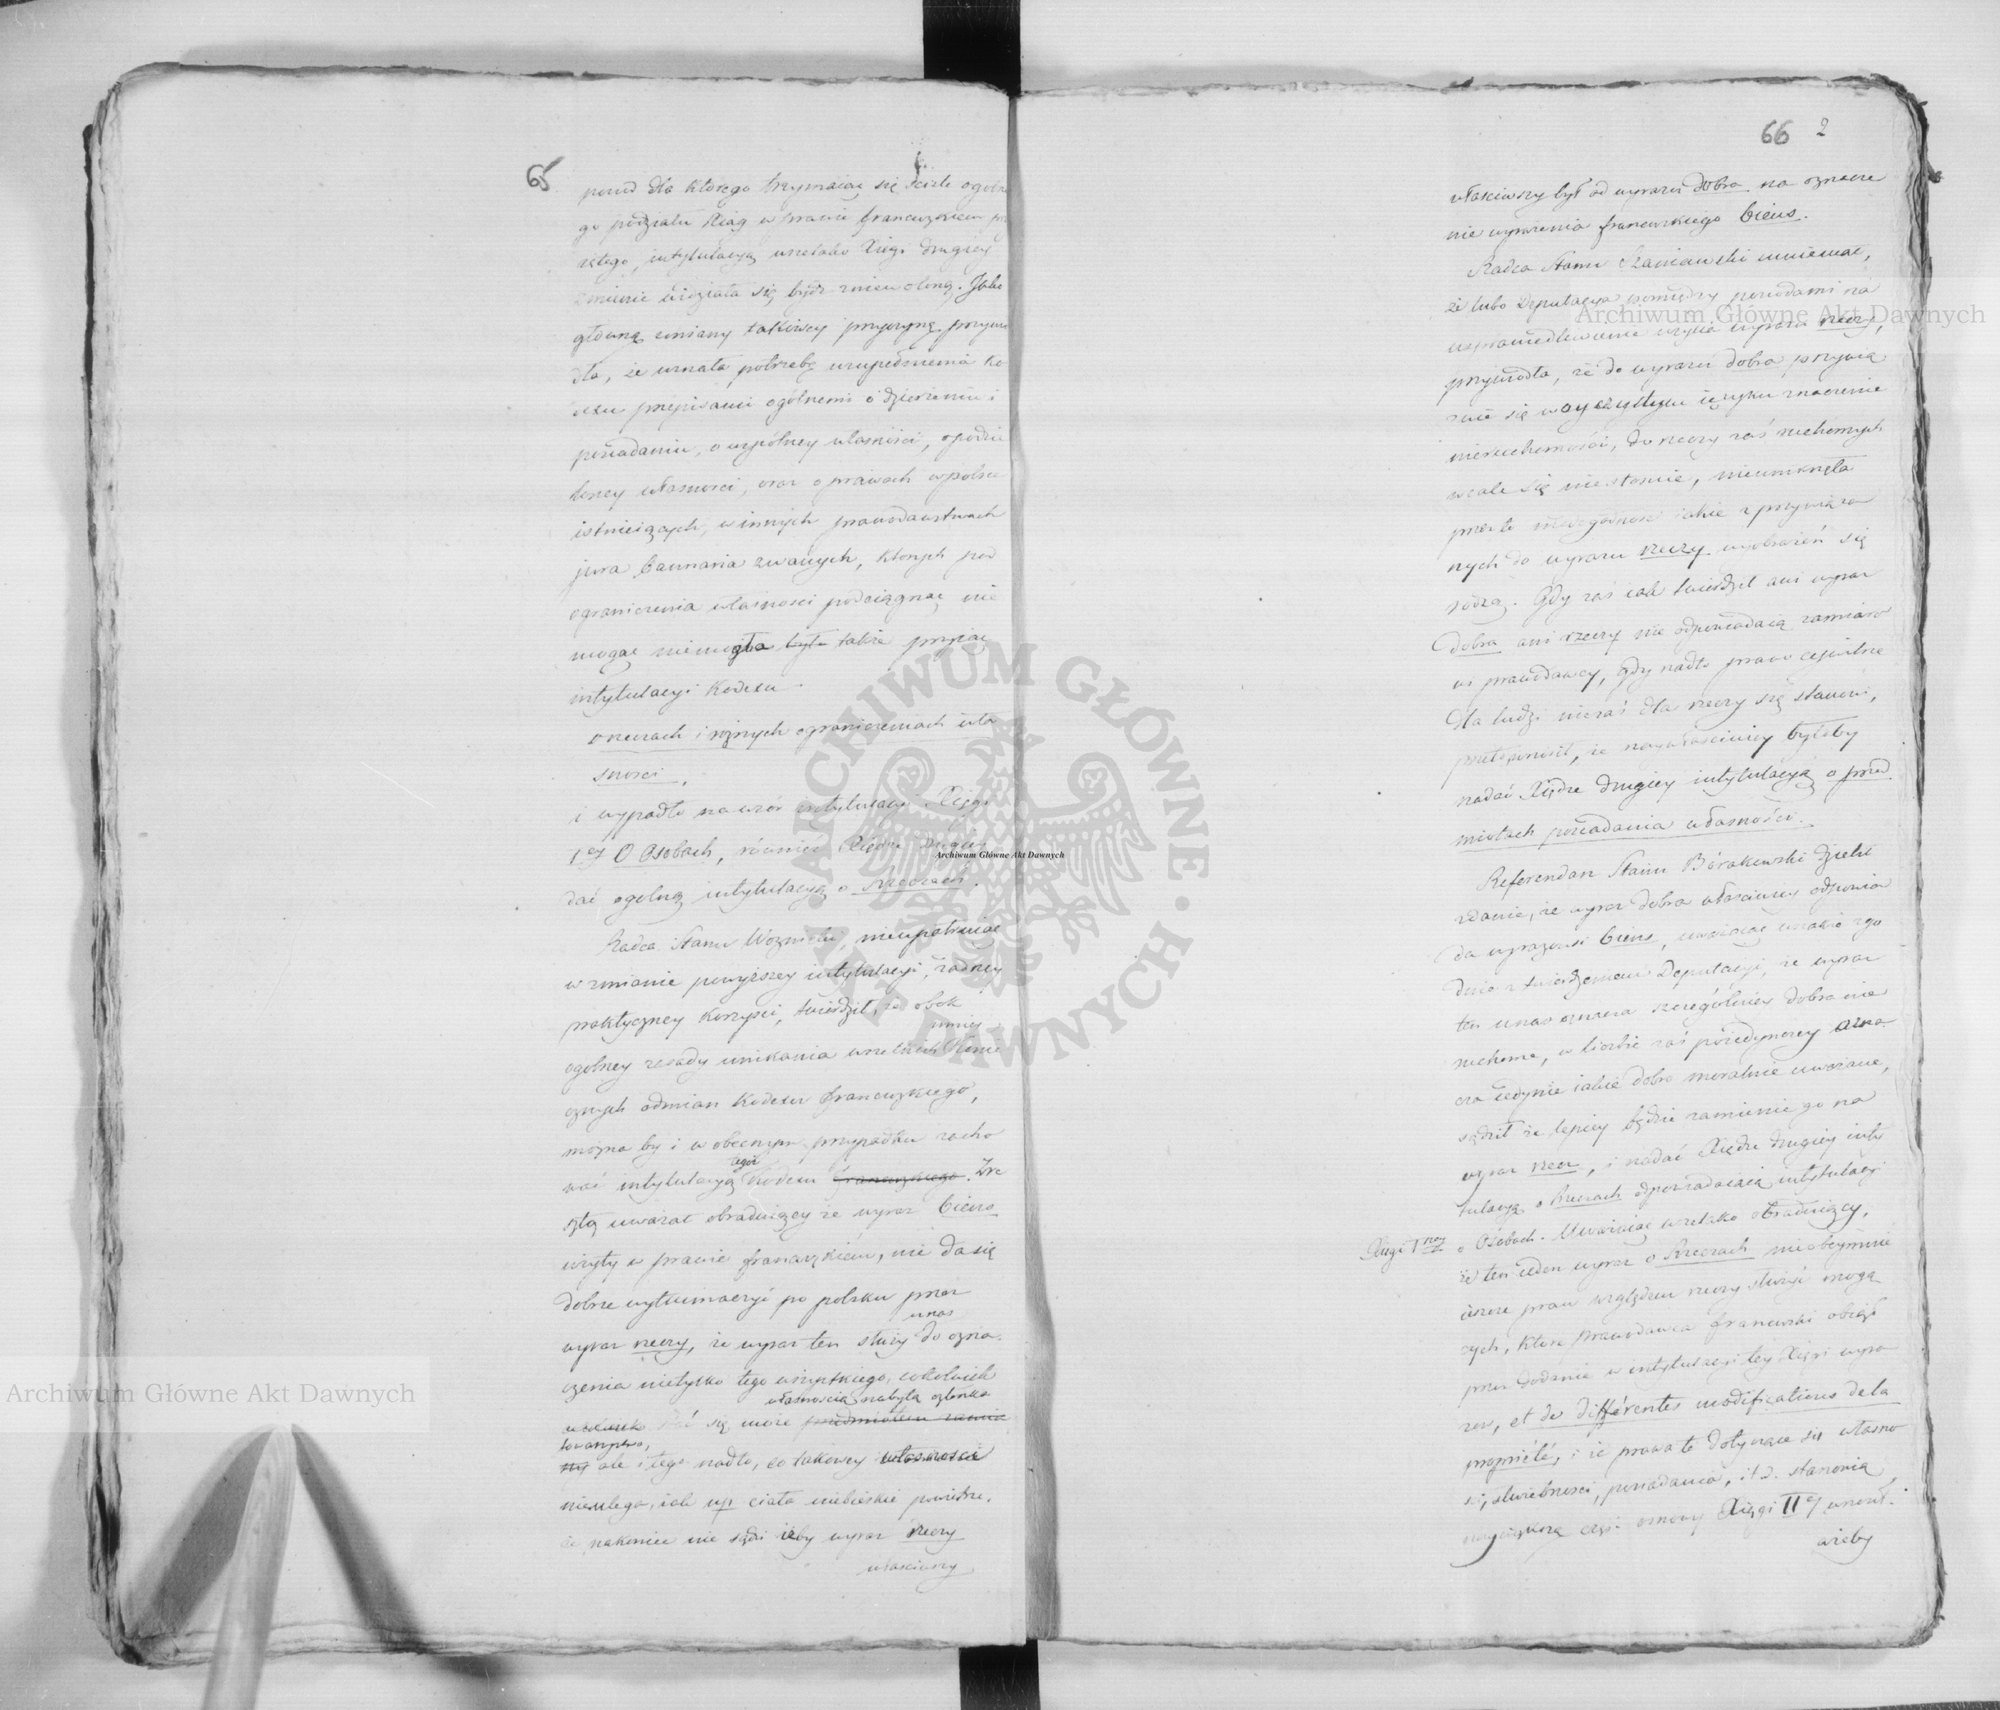 65
powod dla którego trzymaiąc się ściśle ogólne
go podziału Xiąg w prawie francuzkiem przy
iętego, intytulacyą wszelako Xięgi drugiey
zmienić widziała się bydź zniewoloną. Jako
główną zmiany takowey przyczynę przywio
dła, że uznała potrzebę uzupełnienia ko
dexu przepisami ogólnemi o dzierżeniu i
posiadaniu, o wspólney własności, o podzie
loney własności, oraz o prawach w polsce
istnieiących, w innych prawodawstwach
jura bannaria zwanych, których pod
ograniczenia własności podciągnąć nie
mogąc niemogła była także przyiąć
intytulacyi Kodexu
o rzeczach i różnych ograniczeniach wła
sności,
i wypadło na wzór intytulacyi Xięgi
1ey O Osobach, również Xiędze Drugiey
dać ogólną intytulacyą o Rzeczach.
Radca Stanu Woznicki, nieupatruiąc
w zmianie powyższey intytulacyi, żadney
praktyczney korzyści, twierdził, że obok
ogólney zasady unikania wszelkich mniey Konie
cznych odmian Kodexu francuzkiego,
można by i w obecnym przypadku zacho
wać intytulacyą tegoż Kodexu francuzkiego. Zre
sztą uważał obraduiący że wyraz biens
użyty w prawie francuzkiem, nie da się
dobrze wytłumaczyć po polsku przez
wyraz rzeczy, że wyraz ten służy u nas do ozna-
czenia nietylko tego wszystkiego, cokolwiek
stać się może własnością nabytą członka przedmiotem
towarzystwa, ale i tego nadto, co takowey własności
nieulega, iak np ciała niebieskie powietrze,
że nakoniec nie sądzi iżby wyraz rzeczy
właściwszy
66 2
właściwszy był od wyrazu dobra na oznacze
nie wyrażenia francuzkiego biens.
Radca Stanu Szaniawski mniemał,
że lubo Deputacya pomiędzy powodami na
usprawiedliwienie użycia wyrazu rzeczy,
przywiodła, że do wyrazu dobra przywią
zuie się w oyczystym ięzyku znaczenie
nieruchomości, do rzeczy zaś ruchomych
wcale się nie stosuie, nieumknęła
przez to niedogodności iakie z przywiąza
nych do wyrazu rzeczy wyobrażeń się
rodzą. Gdy zaś iak twierdził ani wyraz
dobra ani rzeczy nie odpowiadaią zamiaro
wi prawodawcy, gdy nadto prawo cywilne
dla ludzi nie zaś dla rzeczy się stanowi,
przeto wnosił, że naywłaściwiey byłoby
nadać Xiędze drugiey intytulacyą o przed
miotach posiadania własności.
Referendarz Stanu Bórakowski dzielił
zdanie, że wyraz dobra właściwiey odpowia
da wyrazowi biens, uważaiąc wszakże zgo
dnie z twierdzeniem Deputacyi, że wyraz
ten u nas oznacza szczególniey dobra nie
ruchome, w liczbie zaś poiedynczey ozna
cza iedynie iakie dobro moralnie uważane,
sądził że lepiey będzie zamienić go na
wyraz rzecz, i nadać Xiędze drugiey inty
tulacyą o Rzeczach odpowiadaiącą intytulacyi
Xięgi 1szey o Osobach. Uważaiąc wszelako obraduiący,
że ten ieden wyraz o Rzeczach nieobeymuie
ieszcze praw względem rzeczy służyć mogą
cych, które prawodawca francuzki obiął
przez dodanie w intytulacyi tey Xięgi wyra
zów, et des différentes modifications de la
propriété, i że prawa te dotyczące się własno
ści, służebności, posiadania, itd. stanowią
naywiększą część osnowy Xięgi IIey wnosił,
ażeby